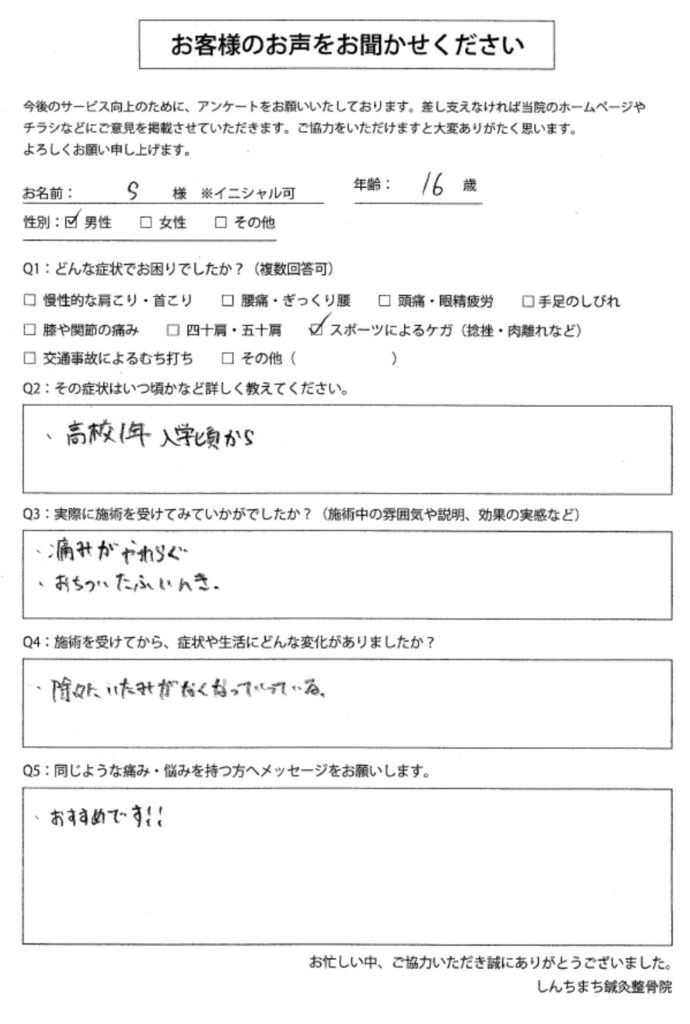 お客様のお声をお聞かせください
今後のサービス向上のために、アンケートをお願いいたしております。差し支えなければ当院のホームページや
チラシなどにご意見を掲載させていただきます。ご協力をいただけますと大変ありがたく思います。
よろしくお願い申し上げます。
お名前： S 様 ※イニシャル可 年齢： 16 歳
性別：☑ 男性 □ 女性 □ その他
Q1：どんな症状でお困りでしたか？（複数回答可）
□ 慢性的な肩こり・首こり □ 腰痛・ぎっくり腰 □ 頭痛・眼精疲労 □ 手足のしびれ
□ 膝や関節の痛み □ 四十肩・五十肩 ☑ スポーツによるケガ（捻挫・肉離れなど）
□ 交通事故によるむち打ち □ その他（ ）
Q2：その症状はいつ頃かなど詳しく教えてください。
、高校1年 入学頃から
Q3：実際に施術を受けてみていかがでしたか？（施術中の雰囲気や説明、効果の実感など）
・痛みがやわらぐ
・おちついたふいんき。
Q4：施術を受けてから、症状や生活にどんな変化がありましたか？
・除々にいたみがなくなっていっている。
Q5：同じような痛み・悩みを持つ方へメッセージをお願いします。
、おすすめです!!
お忙しい中、ご協力いただき誠にありがとうございました。
しんちまち鍼灸整骨院